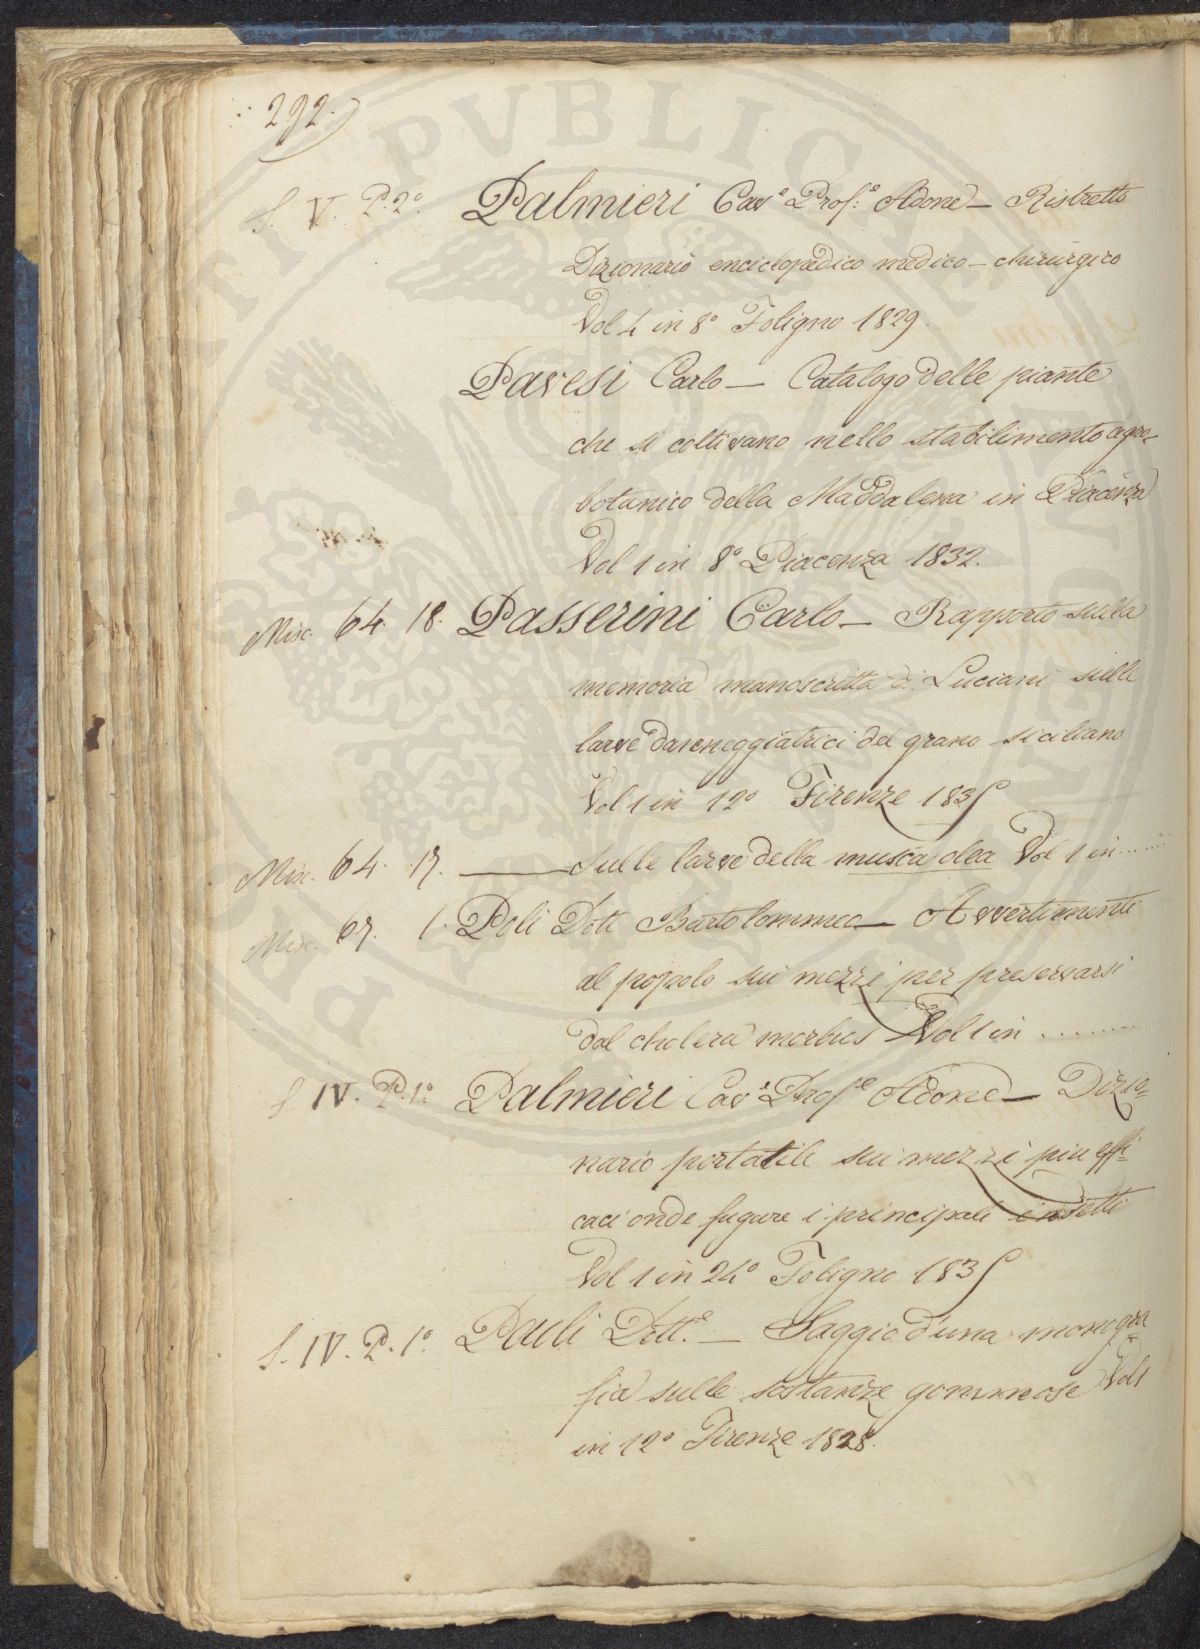 292.
S. V. P. 2º. Palmieri Cavᵉ Profᵉ Adone — Ristretto
Dizionario enciclopedico medico-chirurgico
Vol 4 in 8º Foligno 1829.
Pavesi Carlo — Catalogo delle piante
che si coltivano nello stabilimento agro-
botanico della Maddalena in Piacenza
Vol 1 in 8º Piacenza 1832.
Misc. 64. 18. Passerini Carlo — Rapporto sulla
memoria manoscritta di Luciani sulle
larve danneggiatrici del grano siciliano
Vol 1 in 12º Firenze 1835
Misc. 64. 17. ——— Sulle larve della musca olea Vol 1 in ......
Misc. 67. 1. Poli Dott Bartolommeo — Avvertimenti
al popolo sui mezzi per preservarsi
dal cholera morbus Vol 1 in ........
S. IV. P. 1º. Palmieri Cavᵉ Profᵉ Adone — Dizio-
nario portatile sui mezzi piu effi-
caci onde fugare i principali insetti
Vol 1 in 24º Foligno 1835
S. IV. P. 1º. Pauli Dottᵉ — Saggio d'una monogra
fia sulle sostanze gommose Vol 1
in 12º Firenze 1828.
PVBLICAE